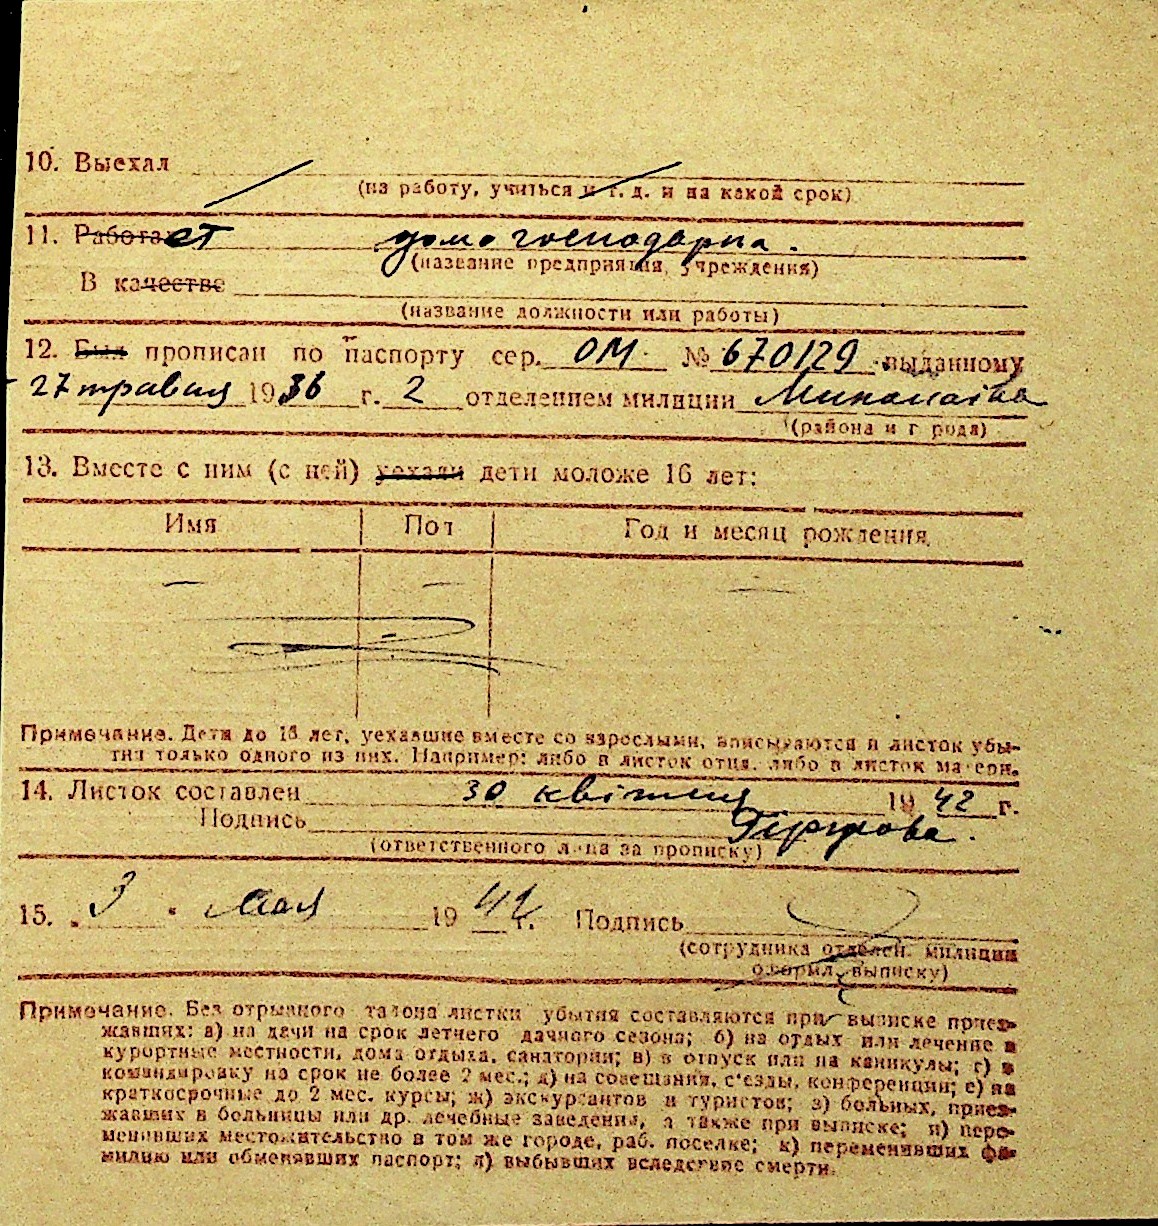 10. Выехал
(на работу, учиться и т. д. и на какой срок)
11. Работает домогосподарка.
(название предприятия, учреждения)
В качестве
(название должности или работы)
12. Был прописан по паспорту сер. ОМ № 670129 выданному
27 травня 1936 г. 2 отделением милиции Миколаїва
(района и города)
13. Вместе с ним (с ней) уехали дети моложе 16 лет:
Имя Пол Год и месяц рождения
— — —
Примечание. Дети до 16 лет, уехавшие вместе со взрослыми, вписываются в листок убы-
тия только одного из них. Например: либо в листок отца, либо в листок матери.
14. Листок составлен 30 квітня 1942 г.
Подпись
(ответственного лица за прописку)
15. „3" мая 1942 г. Подпись
(сотрудника отделен. милиции
оформл. выписку)
Примечание. Без отрывного талона листки убытия составляются при выписке приез-
жавших: а) на дачи на срок летнего дачного сезона; б) на отдых или лечение в
курортные местности, дома отдыха, санатории; в) в отпуск или на каникулы; г) в
командировку на срок не более 2 мес.; д) на совещания, с'езды, конференции; е) на
краткосрочные до 2 мес. курсы; ж) экскурсантов и туристов; з) больных, приез-
жавших в больницы или др. лечебные заведения, а также при выписке; и) пере-
менивших местожительство в том же городе, раб. поселке; к) переменивших фа-
милию или обменявших паспорт; л) выбывших вследствие смерти.